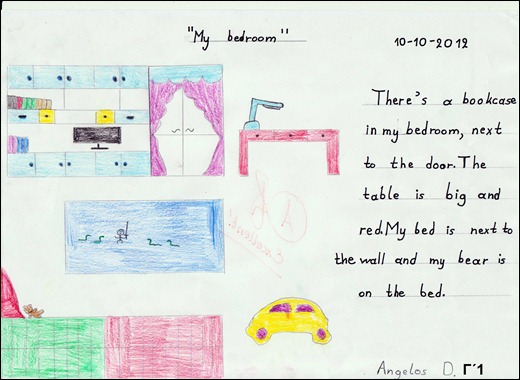 "My bedroom"
10-10-2012
There's a bookcase
in my bedroom, next
to the door. The
table is big and
red. My bed is next to
the wall and my bear is
on the bed.
Excellent!
Angelos D. Γ΄1